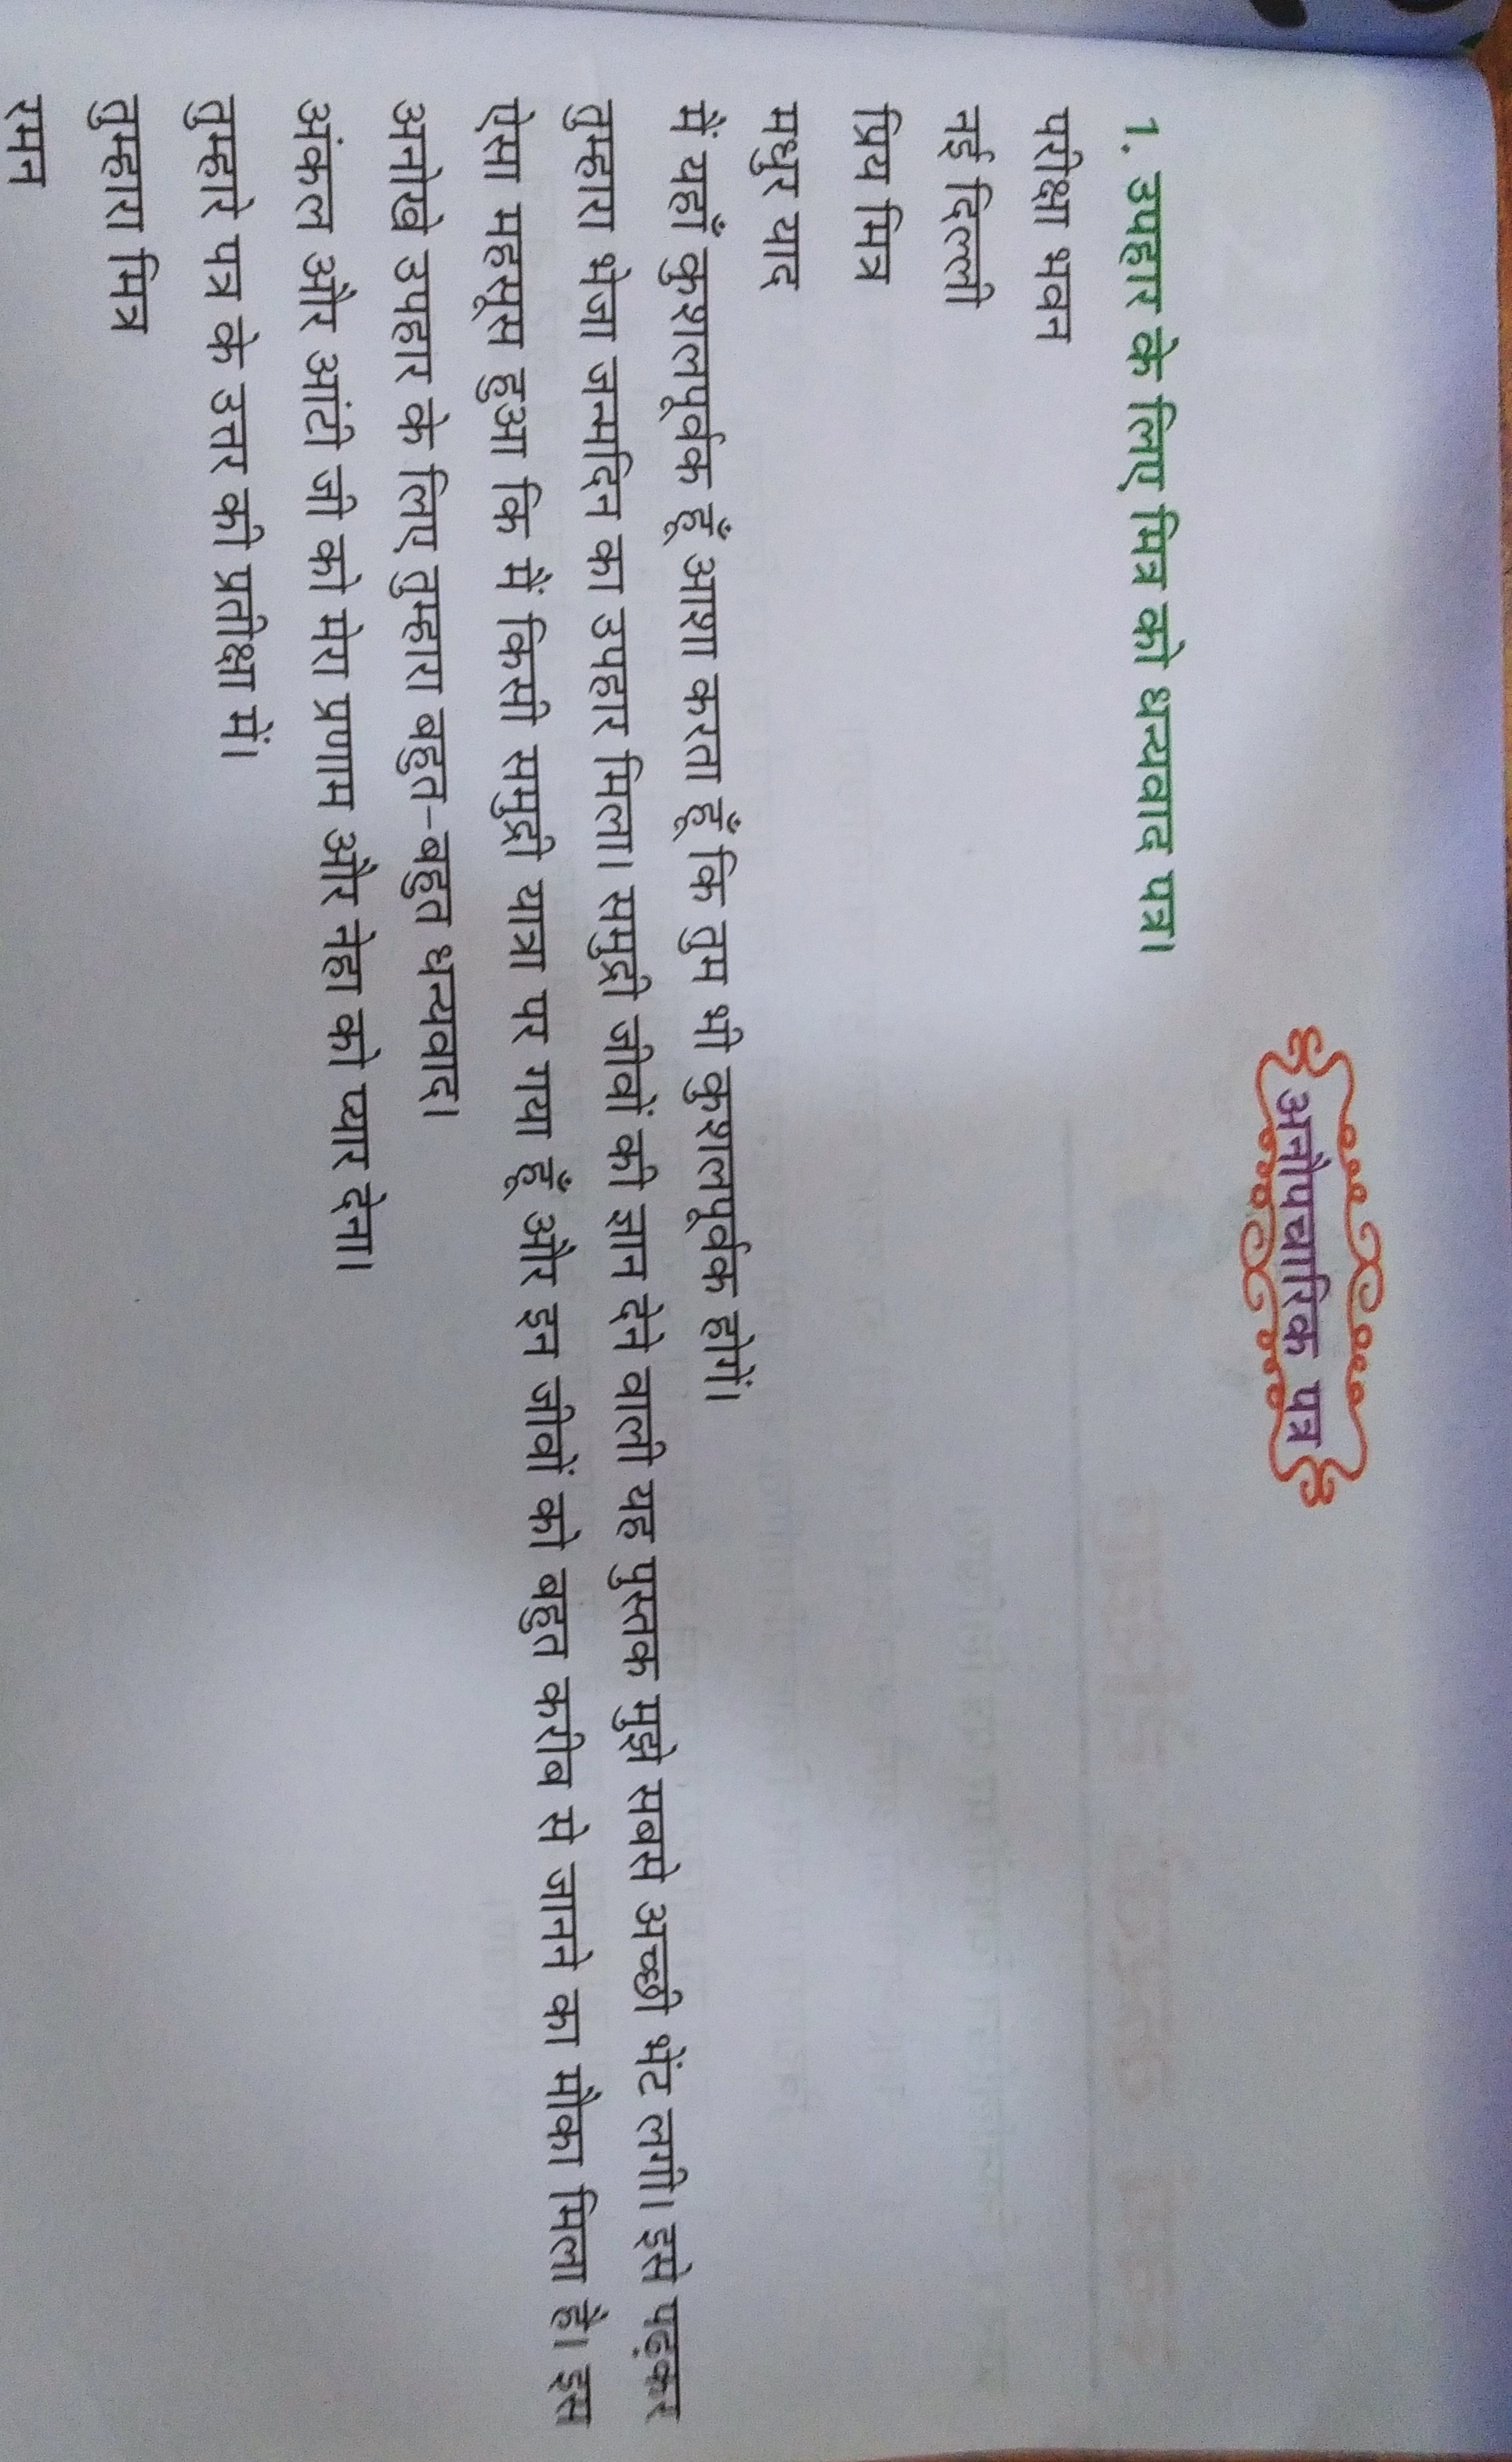 अनौपचारिक पत्र
1. उपहार के लिए मित्र को धन्यवाद पत्र।
परीक्षा भवन
नई दिल्ली
प्रिय मित्र
मधुर याद
मैं यहाँ कुशलपूर्वक हूँ आशा करता हूँ कि तुम भी कुशलपूर्वक होगें।
तुम्हारा भेजा जन्मदिन का उपहार मिला। समुद्री जीवों की ज्ञान देने वाली यह पुस्तक मुझे सबसे अच्छी भेंट लगी। इसे पढ़कर
ऐसा महसूस हुआ कि मैं किसी समुद्री यात्रा पर गया हूँ और इन जीवों को बहुत करीब से जानने का मौका मिला है। इस
अनोखे उपहार के लिए तुम्हारा बहुत-बहुत धन्यवाद।
अंकल और आंटी जी को मेरा प्रणाम और नेहा को प्यार देना।
तुम्हारे पत्र के उत्तर की प्रतीक्षा में।
तुम्हारा मित्र
रमन